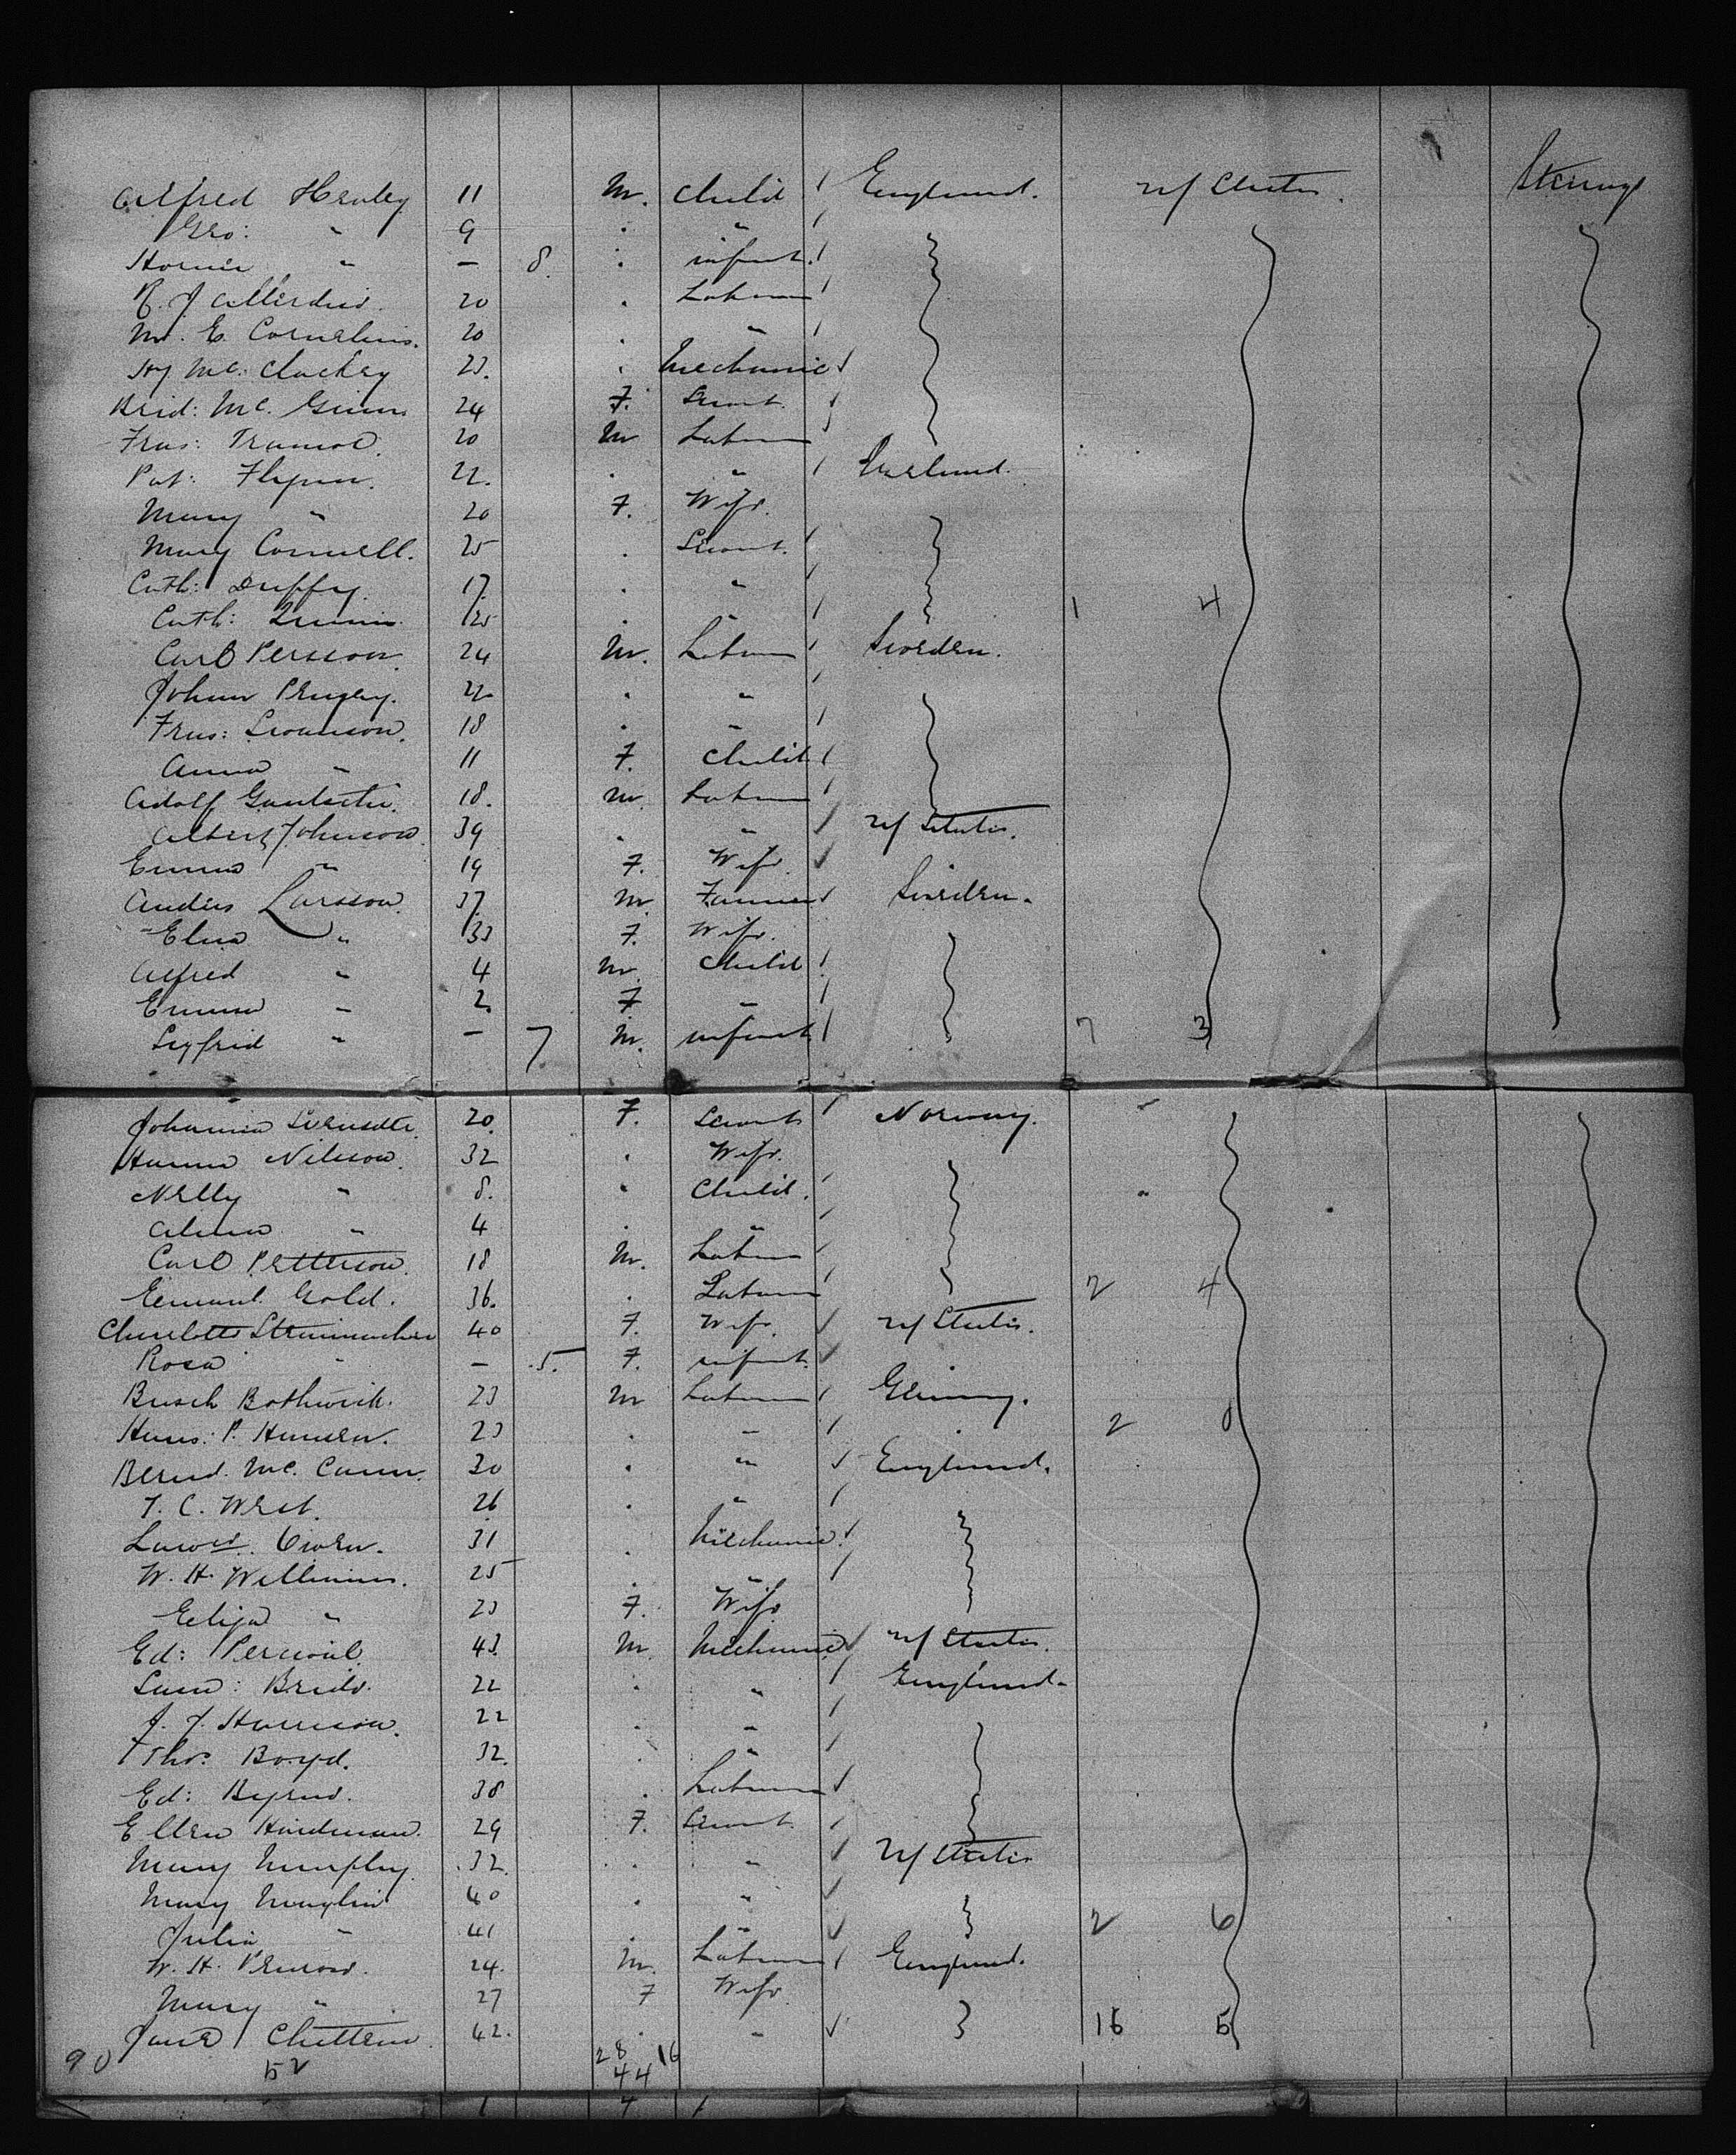 Alfred Henley 11 M. Child England. U/States. Steerage
Geo: " 9 . "
" — 8. . infant.
R. J. 20 . Labour
M. E. Cornelius. 20 . "
Hy. Mc. Cluckey 23. . Mechanic
Brid: Mc. Ginn 24 F. Servnt.
Fras: 20 M Labour
Pat: Flynn. 22. . " Ireland.
Mary " 20 F. Wife.
Mary Connell. 25 . Servnt.
Cath: Duffy. 17. . "
Cath: Quinn. 25 . 1 4
Carl Persson. 24 M. Labour Sweden.
Johan 22 . "
Fras: Swanson. 18 . "
Anna " 11 F. Child
Adolf 18. M. Labour
Albert Johnson. 39 . " U/States.
Emma " 19 F. Wife.
Andres Larsson. 37. M. Farmer Sweden.
Elna " 33 F. Wife.
Alfred " 4 M. Child
Emma " 2. F "
Sigfrid " — 7. M. infant 7 3
Johanna 20. F. Servnt Norway.
Hanna Nilsson. 32 . Wife.
Nelly " 8. . Child.
Alma " 4 . "
Carl Petterson. 18 M. Labour
Gold. 36. . Labour 2 4
Charlotte 40 F. Wife. U/States.
Rosa " — 5. F. infant.
Busch Bothwick. 23 M Labour Germny.
Hans: P. Hansen. 23 . " 2 0
Bernd. Mc. Cann. 30 . " England.
T. C. West. 26 . "
Lawce. Owen. 31 . Mechanic.
W. H. Williams. 25 . "
Eliza " 23 F. Wife
Ed: Percival. 43. M. Mechanic U/States.
22 . " England.
J. J. Harrison. 22 . "
Thos. Boyd. 32. . "
Ed: Byrne. 38 . Labour
Ellen Hardman. 29 F. Servnt.
Mary Murphy. 32. . " U/States
Mary 40 . "
Julia " 41 . " 2 6
W. H. 24. M. Labour England.
Mary " 27 F Wife.
Jane 42. . " 16 5
90 52 28 16
44